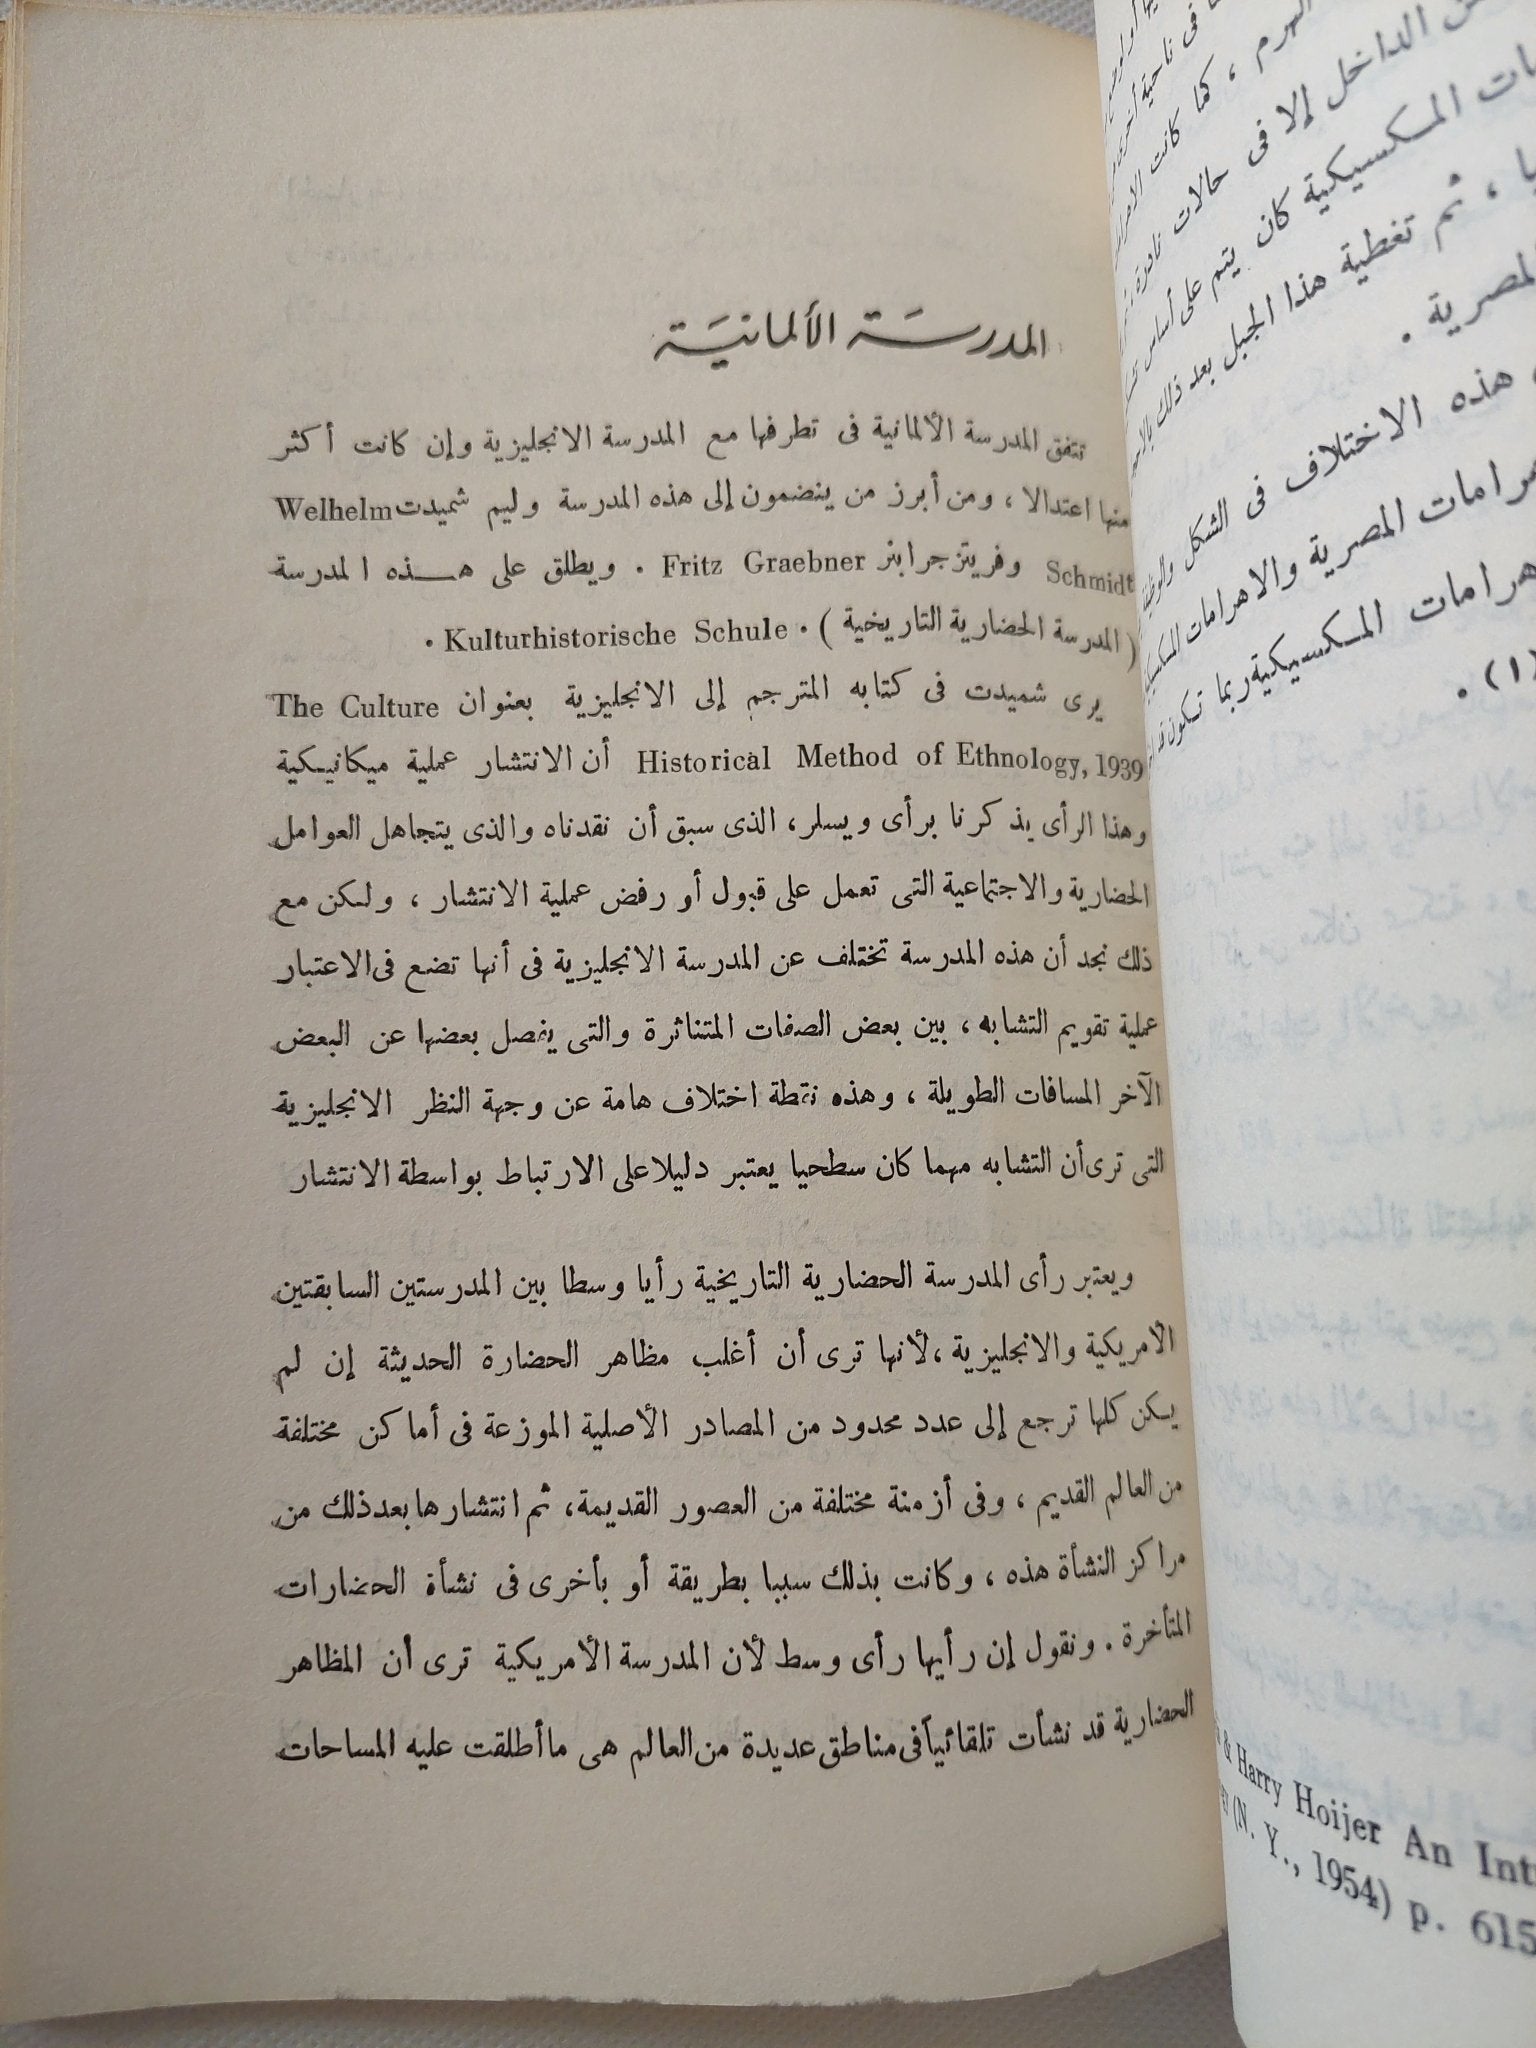 المدرسَة الألمانيَة
تتفق المدرسة الألمانية فى تطرفها مع المدرسة الانجليزية وإن كانت أكثر
منها اعتدالا ، ومن أبرز من ينضمون إلى هذه المدرسة وليم شميدت Welhelm
Schmidt وفريتز جرابنر Fritz Graebner . ويطلق على هـــذه المدرسة
( المدرسة الحضارية التاريخية ) . Kulturhistorische Schule .
يرى شميدت فى كتابه المترجم إلى الانجليزية بعنوان The Culture
Historical Method of Ethnology, 1939 أن الانتشار عملية ميكانيكية
وهذا الرأى يذكرنا برأى ويسلر ، الذى سبق أن نقدناه والذى يتجاهل العوامل
الحضارية والاجتماعية التى تعمل على قبول أو رفض عملية الانتشار ، ولكن مع
ذلك نجد أن هذه المدرسة تختلف عن المدرسة الانجليزية فى أنها تضع فى الاعتبار
عملية تقويم التشابه ، بين بعض الصفات المتناثرة والتى يفصل بعضها عن البعض
الآخر المسافات الطويلة ، وهذه نقطة اختلاف هامة عن وجهة النظر الانجليزية
التى ترى أن التشابه مهما كان سطحيا يعتبر دليلا على الارتباط بواسطة الانتشار
ويعتبر رأى المدرسة الحضارية التاريخية رأيا وسطا بين المدرستين السابقتين
الأمريكية والانجليزية ، لأنها ترى أن أغلب مظاهر الحضارة الحديثة إن لم
يكن كلها ترجع إلى عدد محدود من المصادر الأصلية الموزعة فى أماكن مختلفة
من العالم القديم ، وفى أزمنة مختلفة من العصور القديمة ، ثم انتشارها بعد ذلك من
مراكز النشأة هذه ، وكانت بذلك سببا بطريقة أو بأخرى فى نشأة الحضارات
المتأخرة . ونقول إن رأيها رأى وسط لأن المدرسة الأمريكية ترى أن المظاهر
الحضارية قد نشأت تلقائياً فى مناطق عديدة من العالم هى ما أطلقت عليه المساحات
الهرم ، كما كانت
الداخل إلا فى حالات نادرة
المكسيكية كان يتم على أساس
، ثم تغطية هذا الجبل بعد ذلك
هذه الاختلاف فى الشكل
المصرية والاهرامات
المكسيكية ربما تكون
(١) .
& Harry Hoijer An
(N. Y., 1954) p. 615